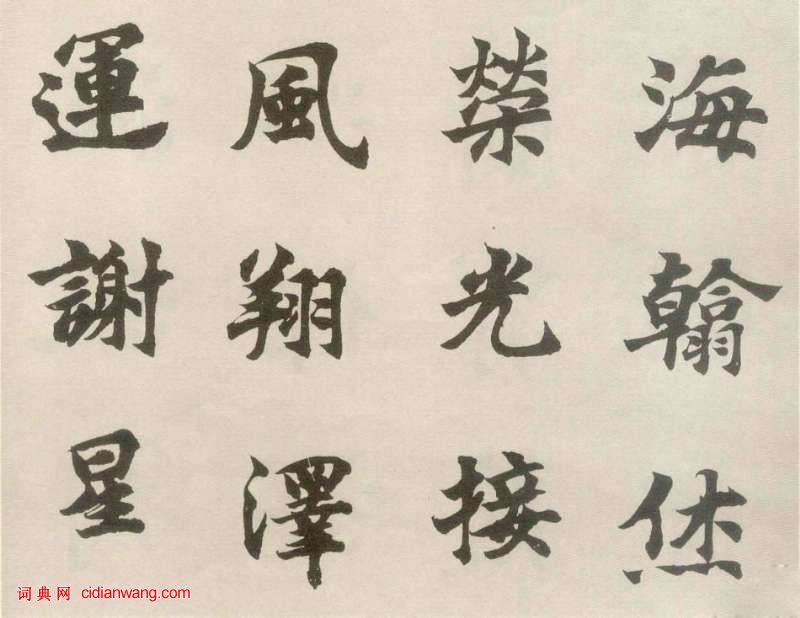 海翰烋
榮光接
風翔澤
運謝星
词典网 cidianwang.com